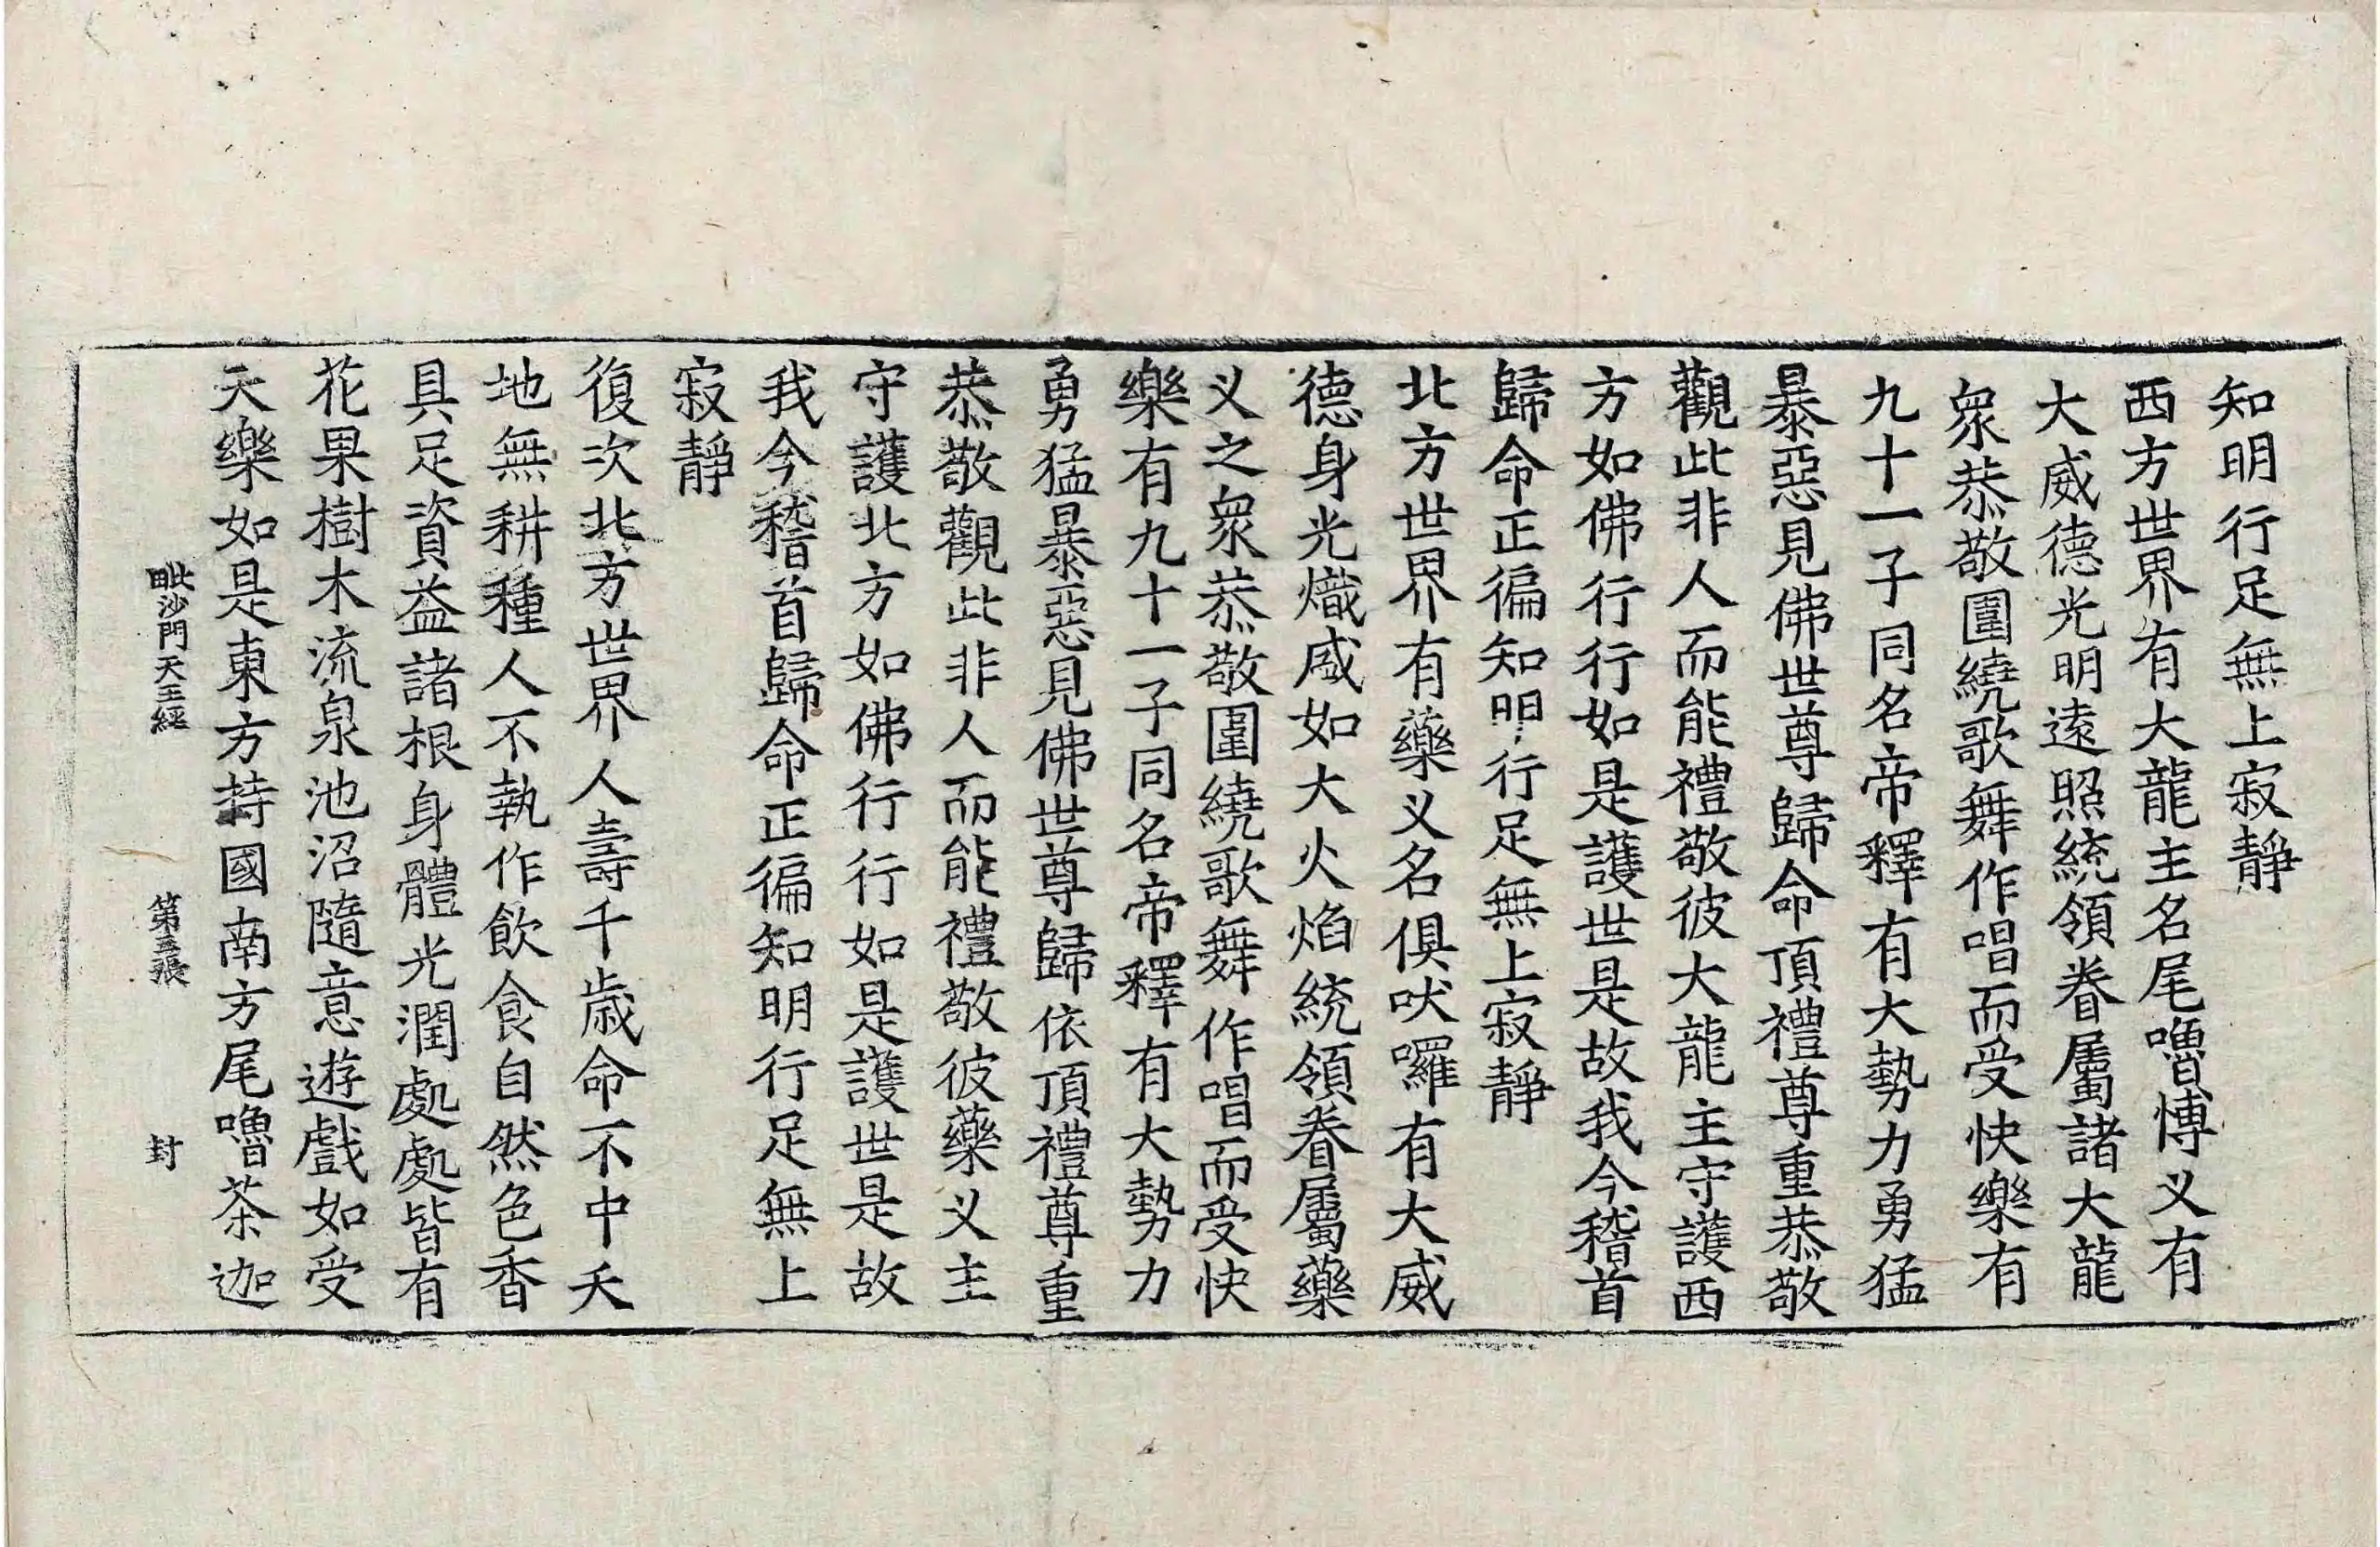 知明行足無上寂靜
西方世界有大龍主名尾嚕博义有
大威德光明遠照統領眷屬諸大龍
衆恭敬圍繞歌舞作唱而受快樂有
九十一子同名帝釋有大勢力勇猛
暴惡見佛世尊歸命頂禮尊重恭敬
觀此非人而能禮敬彼大龍主守護西
方如佛行行如是護世是故我今稽首
歸命正徧知明行足無上寂靜
北方世界有藥义名俱吠囉有大威
德身光熾盛如大火焰統領眷屬藥
义之衆恭敬圍繞歌舞作唱而受快
樂有九十一子同名帝釋有大勢力
勇猛暴惡見佛世尊歸依頂禮尊重
恭敬觀此非人而能禮敬彼藥义主
守護北方如佛行行如是護世是故
我今稽首歸命正徧知明行足無上
寂靜
復次北方世界人壽千歲命不中夭
地無耕種人不執作飲食自然色香
具足資益諸根身體光潤處處皆有
花果樹木流泉池沼隨意遊戲如受
天樂如是東方持國南方尾嚕茶迦
毗沙門天王經 第三張 封